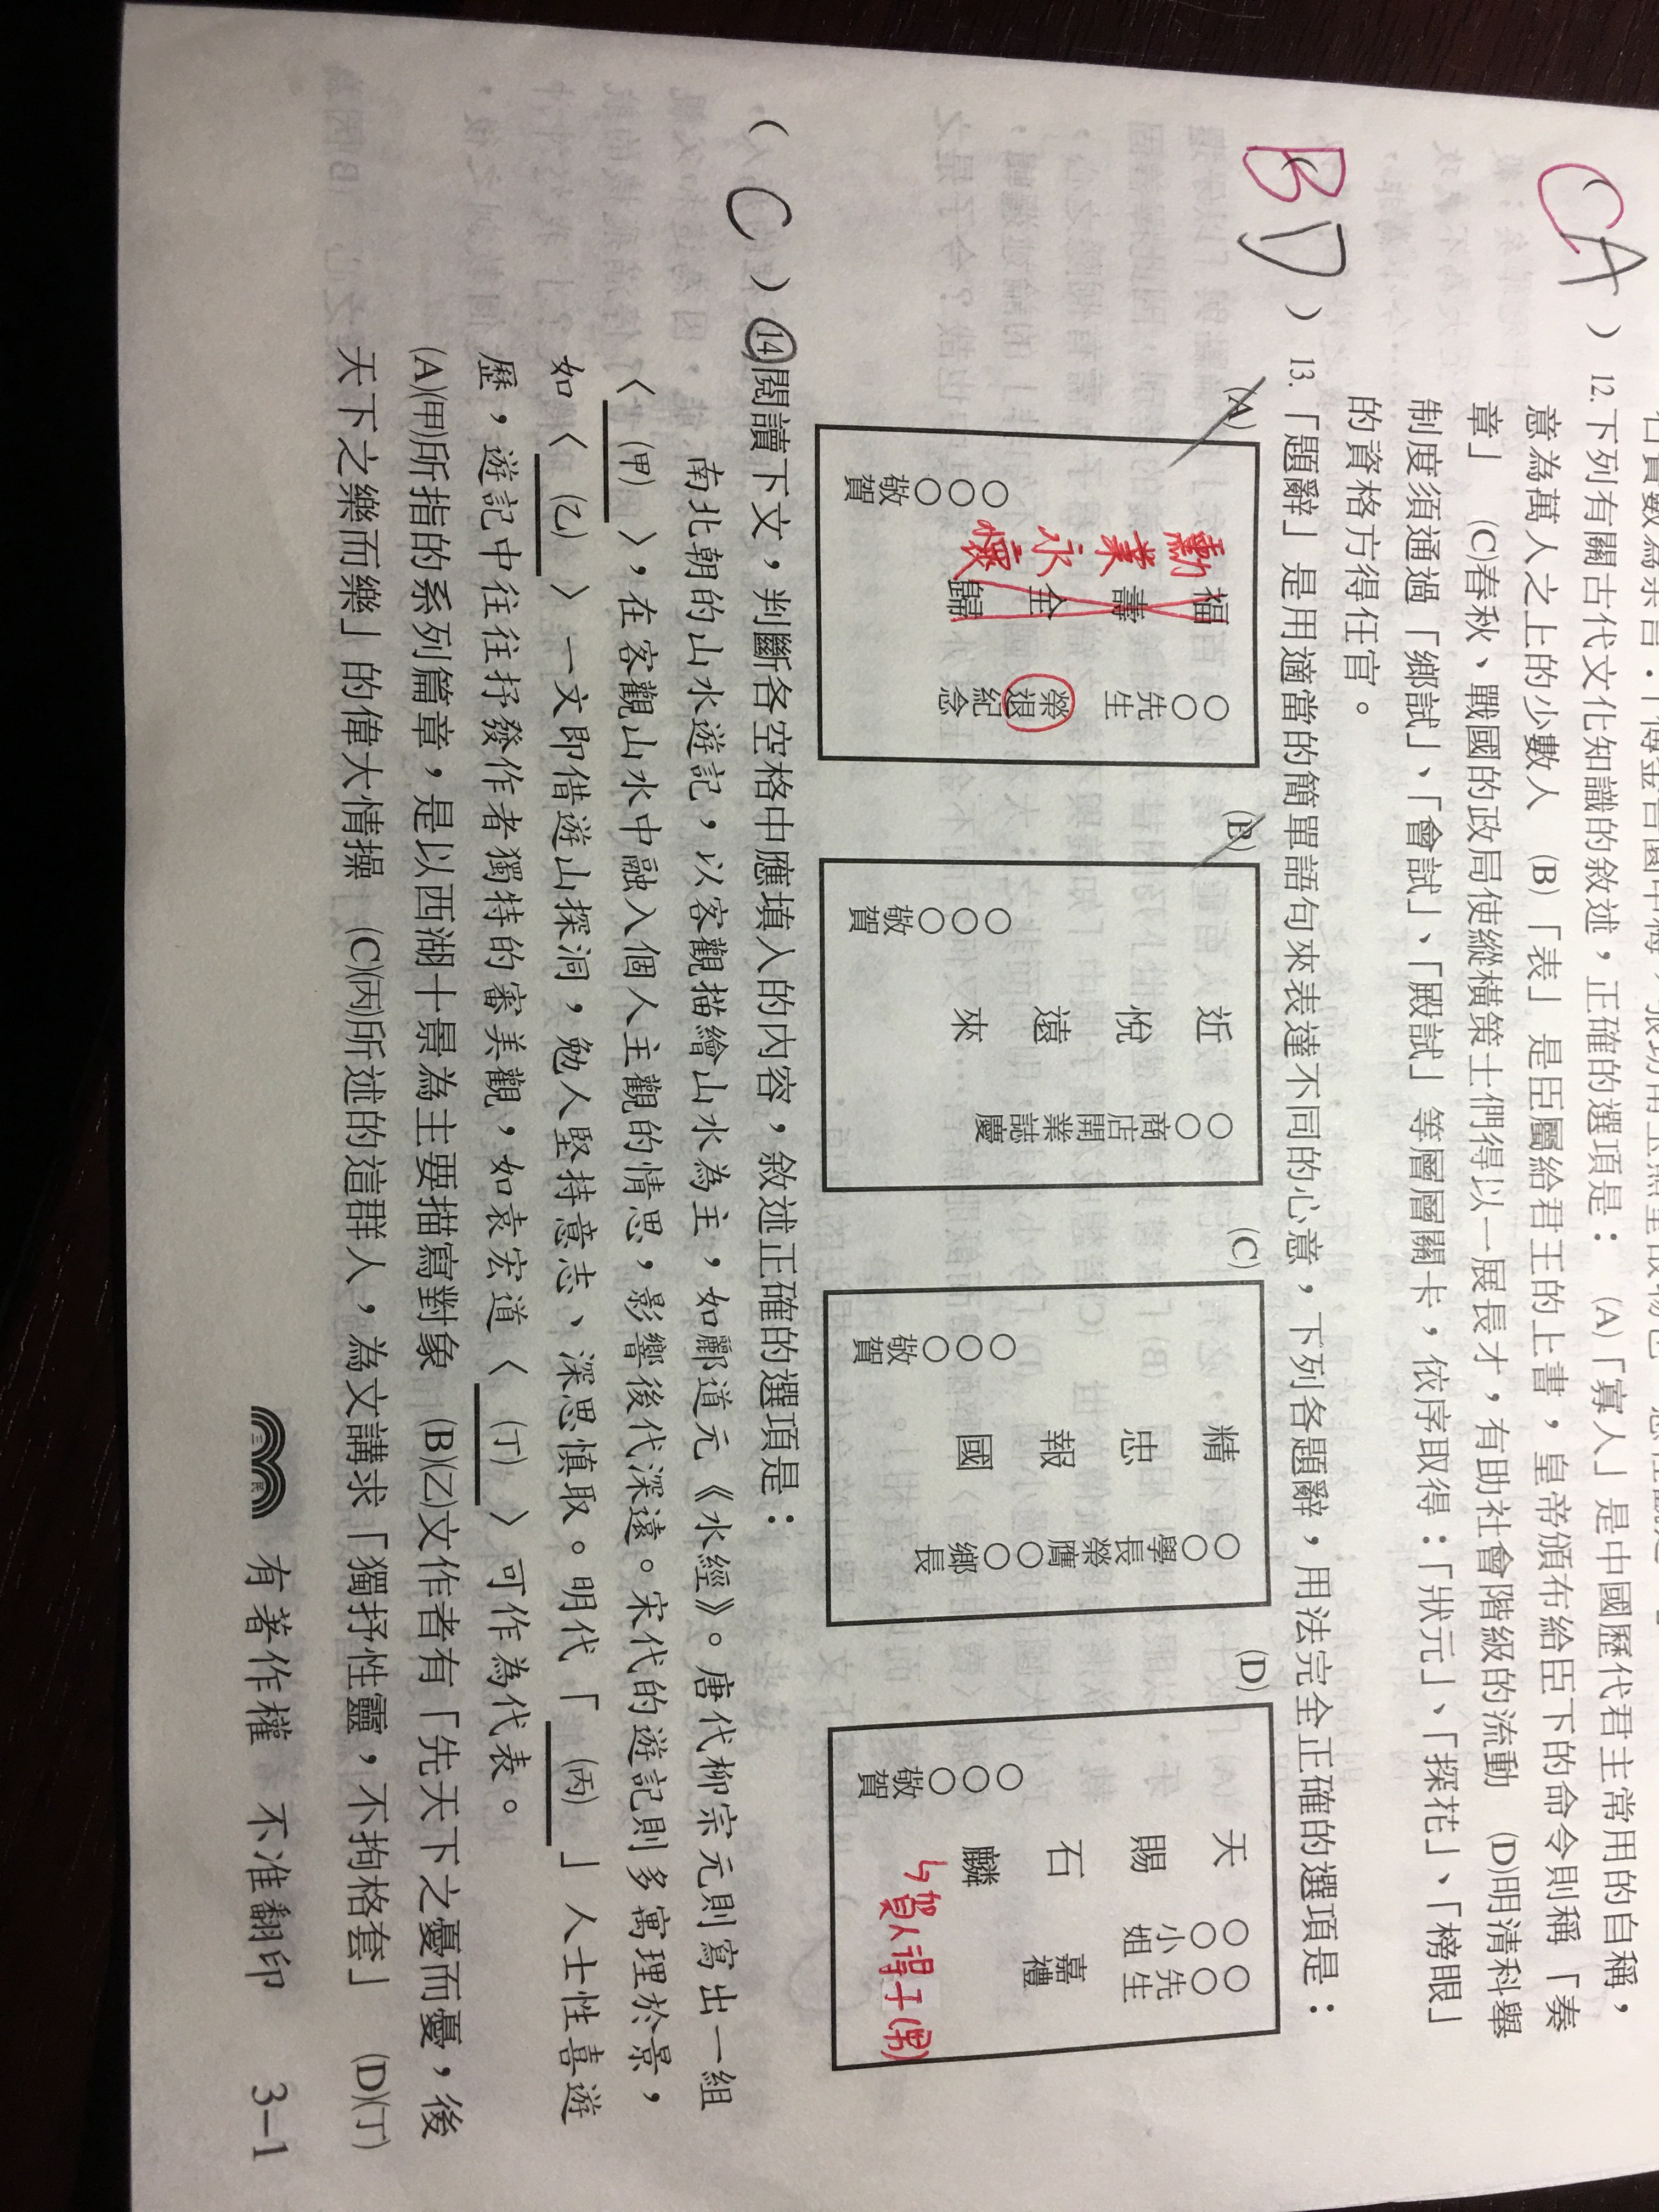 CA ) 12.下列有關古代文化知識的敘述，正確的選項是： (A)「寡人」是中國歷代君主常用的自稱，
意為萬人之上的少數人 (B)「表」是臣屬給君王的上書，皇帝頒布給臣下的命令則稱「奏
章」 (C)春秋、戰國的政局使縱橫策士們得以一展長才，有助社會階級的流動 (D)明清科舉
制度須通過「鄉試」、「會試」、「殿試」等層層關卡，依序取得：「狀元」、「探花」、「榜眼」
的資格方得任官。
BD ) 13.「題辭」是用適當的簡單語句來表達不同的心意，下列各題辭，用法完全正確的選項是：
(A)
○○先生榮退紀念
福壽全歸
勳業永懷
○○○敬賀
(B)
○○商店開業誌慶
近悅遠來
○○○敬賀
(C)
○○學長榮膺○○鄉長
精忠報國
○○○敬賀
(D)
○○先生
○○小姐
嘉禮
天賜石麟
賀人得子(男)
○○○敬賀
( C ) 14閱讀下文，判斷各空格中應填入的內容，敘述正確的選項是：
南北朝的山水遊記，以客觀描繪山水為主，如酈道元《水經》。唐代柳宗元則寫出一組
〈 (甲) 〉，在客觀山水中融入個人主觀的情思，影響後代深遠。宋代的遊記則多寓理於景，
如〈 (乙) 〉一文即借遊山探洞，勉人堅持意志、深思慎取。明代「 (丙) 」人士性喜遊
歷，遊記中往往抒發作者獨特的審美觀，如袁宏道〈 (丁) 〉可作為代表。
(A)(甲)所指的系列篇章，是以西湖十景為主要描寫對象 (B)(乙)文作者有「先天下之憂而憂，後
天下之樂而樂」的偉大情操 (C)(丙)所述的這群人，為文講求「獨抒性靈，不拘格套」 (D)(丁)
三民 有著作權 不准翻印 3-1